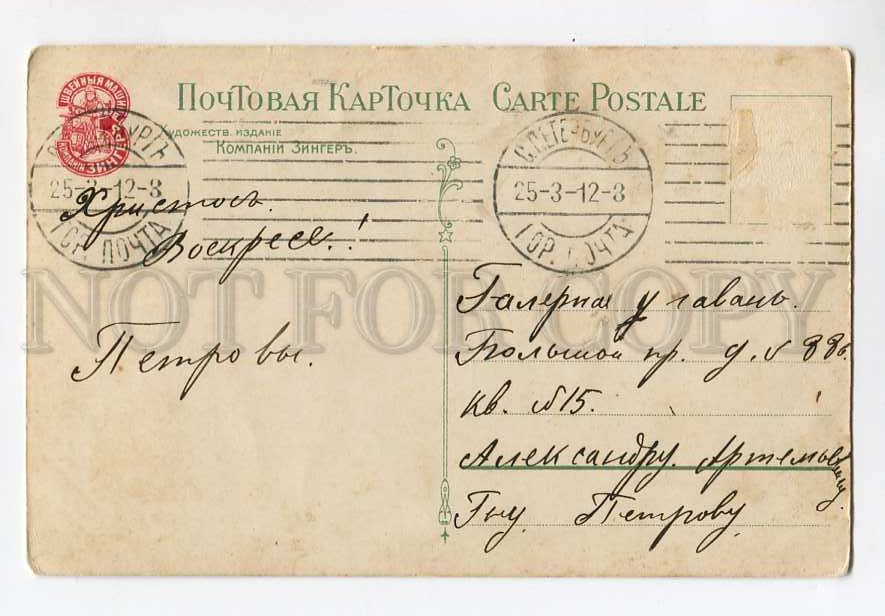 Почтовая Карточка Carte Postale
Художеств. издание
Компаніи Зингеръ.
ШВЕЙНЫЯ МАШИНЫ
КОМПАНІИ ЗИНГЕРЪ
С.ПЕТЕРБУРГЪ
25-3-12-8
ГОР. ПОЧТА
С.ПЕТЕРБУРГЪ
25-3-12-8
ГОР. ПОЧТА
Христосъ
Воскресе!
Петровы.
Галерная гавань.
Большой пр. д. № 88.
кв. №15.
Александру Артемьевичу
Гну Петрову
NOT FOR COPY